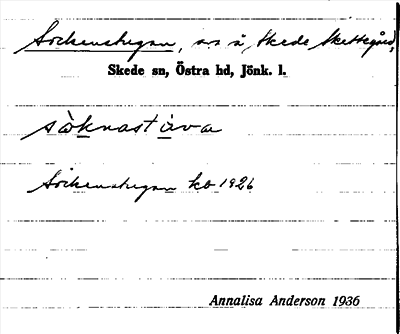 Sockenstugan, s. s å Skede Skattegård,
Skede sn, Östra hd, Jönk. l.
sòknast ùva
Sockenstugan kb 1926
Annalisa Anderson 1936